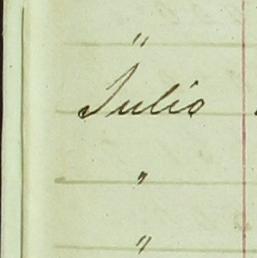 "
Julio
"
"